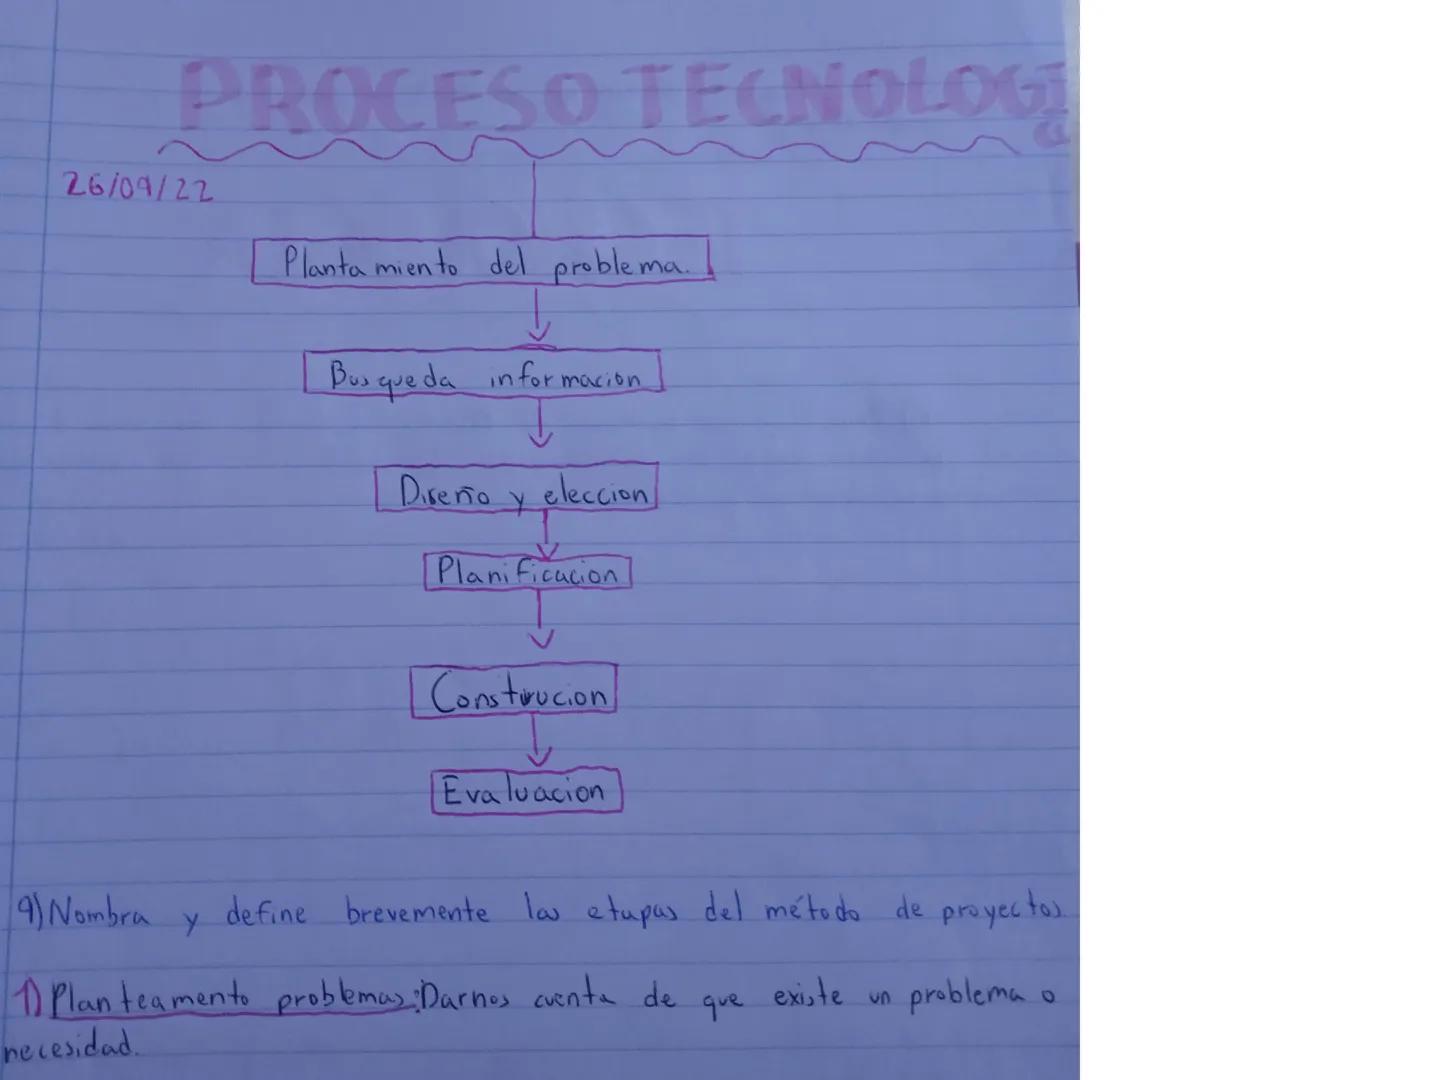 PROCESO TECNOLOGI
CO
26/09/22
Plantamiento del problema.
Busqueda informacion
Diseño y eleccion
Planificacion
Construcion
Evaluacion
9) Nombra y define brevemente las etapas del método de proyectos
1) Planteamento problemas: Darnos cuenta de que existe un problema o
necesidad.